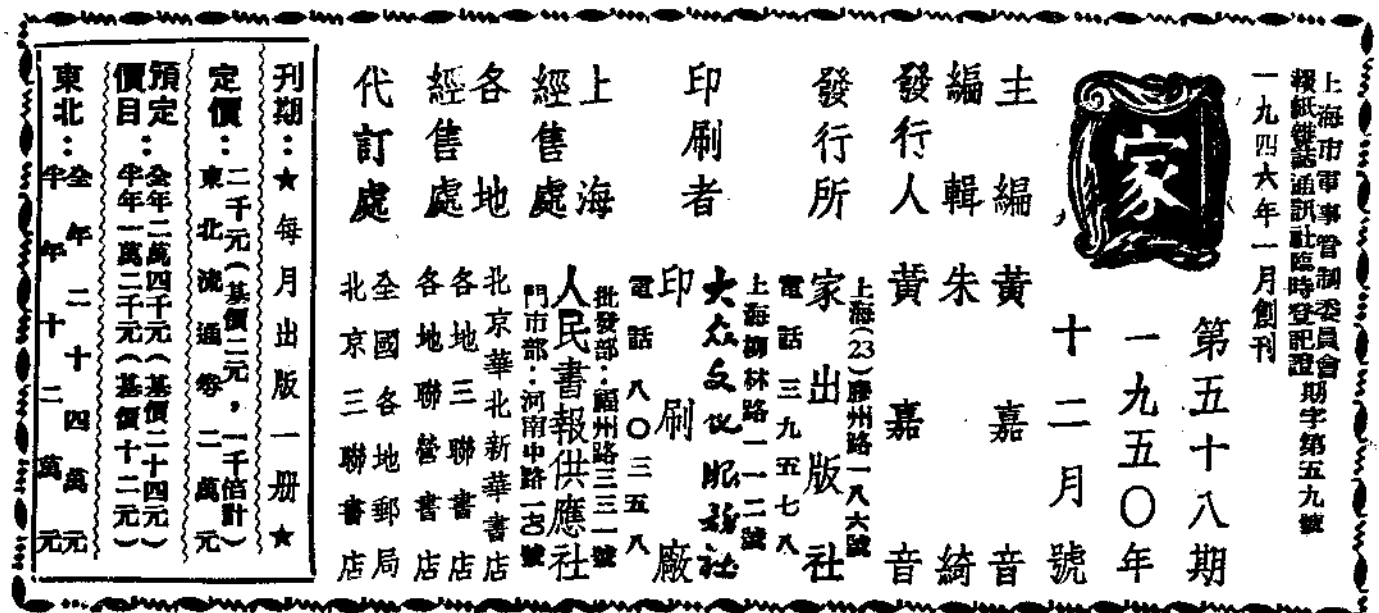 上海市軍事管制委員會
報紙雜誌通訊社臨時登記證期字第五九號
一九四六年一月創刊
家
第五十八期
一九五〇年
十二月號
主編 黃嘉音
編輯 朱綺
發行人 黃嘉音
上海(23)膠州路一八六號
發行所 家出版社
電話 三九五七八
上海柳林路一一二號
大众文化服務社
印刷者 印刷廠
電話 八〇三五八
上海經售處
批發部：福州路三三一號
人民書報供應社
門市部：河南中路一〇號
各地經售處
北京華北新華書店
各地三聯書店
各地聯營書店
代訂處
全國各地郵局
北京三聯書店
刊期：★每月出版一册★
定價：二千元(基價二元，一千倍計)
東北流通券二萬元
預定價目：全年二萬四千元(基價二十四元)
半年一萬二千元(基價十二元)
東北：全年二十四萬元
半年十二萬元